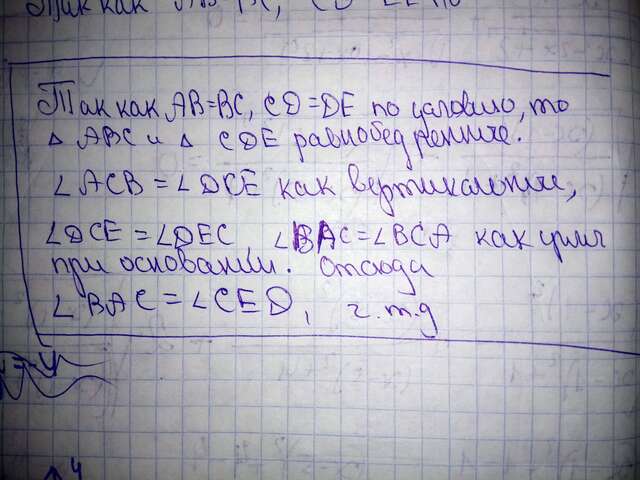 Так как AB=BC, CD=DE по условию, то
△ ABC и △ CDE равнобедренные.
∠ACB = ∠DCE как вертикальные,
∠DCE = ∠DEC ∠BAC=∠BCA как углы
при основании. Отсюда
∠BAC = ∠CED, ч.т.д
Так как BC, CD